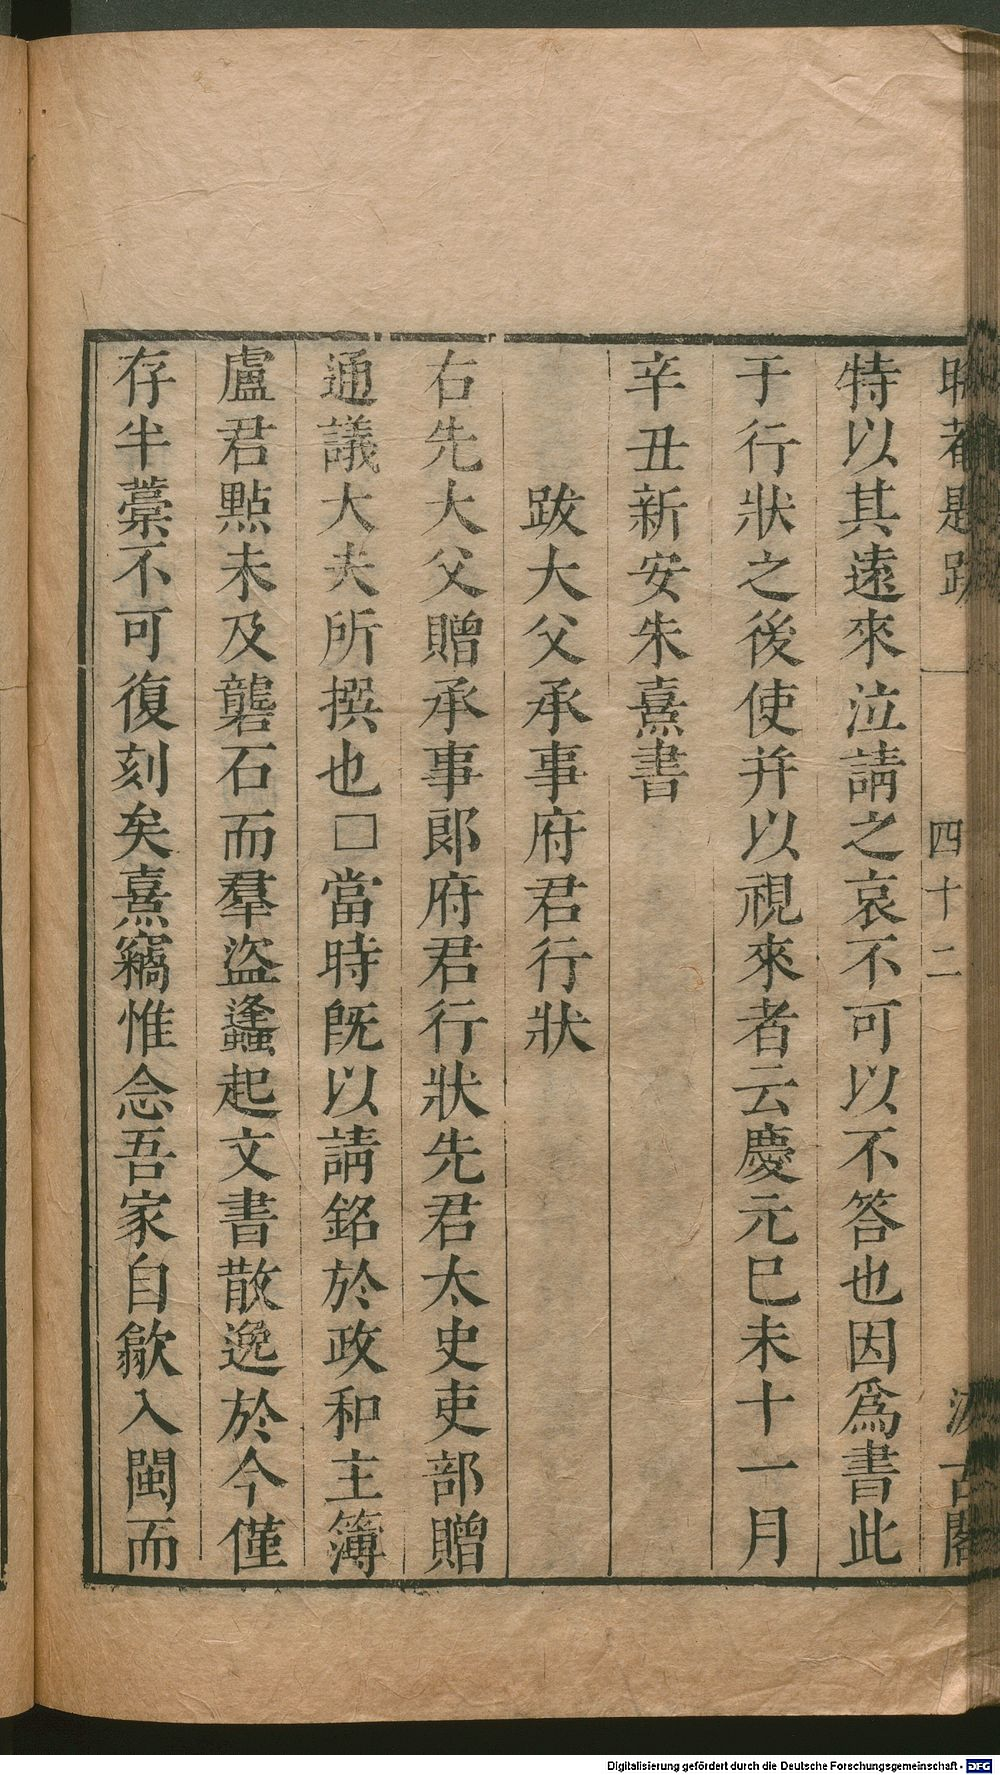 特以其遠來泣請之哀不可以不答也因爲書此
于行狀之後使并以視來者云慶元巳未十一月
辛丑新安朱熹書
跋大父承事府君行狀
右先大父贈承事郎府君行狀先君太史吏部贈
通議大夫所撰也□當時既以請銘於政和主簿
盧君點未及礱石而羣盜蠭起文書散逸於今僅
存半藁不可復刻矣熹竊惟念吾家自歙入閩而
四十二
古閣
Digitalisierung gefördert durch die Deutsche Forschungsgemeinschaft - DFG